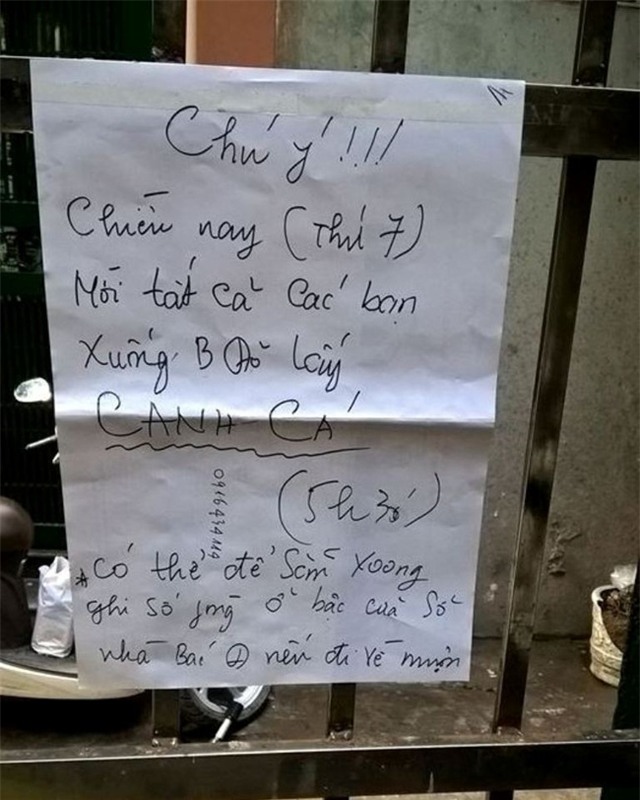 Chú ý !!!!
Chiều nay (Thứ 7)
Mời tất cả các bạn
Xuống B lấy
CANH CÁ
(5h30)
* Có thể để sẵn Xoong
ghi số ở bậc cửa sổ
nhà Bác nếu đi về muộn